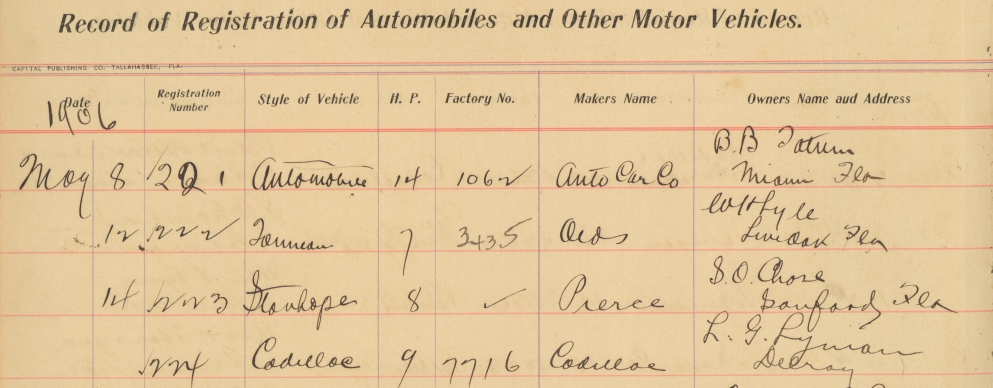 Record of Registration of Automobiles and Other Motor Vehicles.
CAPITAL PUBLISHING CO. TALLAHASSEE, FLA.
Date 1906 Registration Number Style of Vehicle H. P. Factory No. Makers Name Owners Name aud Address
B. B Tatum
May 8 221 Automobile 14 1062 Auto Car Co Miami Fla
W H Lyle
12 222 Tonneau 7 3435 Olds Live Oak Fla
S. O. Chase
14 223 Stanhope 8 ✓ Pierce Sanford, Fla
L. G. Lyman
224 Cadillac 9 7716 Cadillac Delray